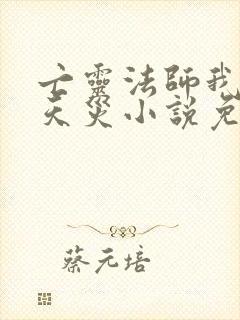 亡靈法師我
天災小説免
蔡元培